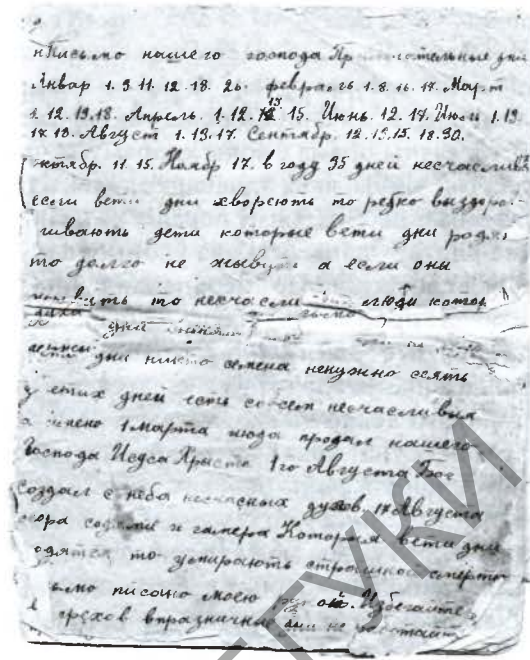 Письмо нашего господа При дни
Январ 1. 3 11. 12. 18. 26. февраль 1. 8. 16. 17. Март
1. 12. 13. 18. Апрель. 1. 12. 13 15. Июнь. 12. 17. Июли 1. 13.
17. 18. Август 1. 13. 17. Сентябр. 12. 13. 15. 18. 30.
ктябр. 11 15. Наябр 17. в году 35 дней несчасливых
если вети дни хвореють то редко выздора-
гивають дети которые вети дни родя
то долго не жывуть а если они
то несчасли люди котор
дни
дни никто семена ненужно сеять
етих дней есть совсем несчасливыя
имено 1 марта июда продал нашего
Господа Исуса Христа 1го Августа Бог
создал с неба несчасных духов, 17 Августа
ора содоми и гамера Которыя вети дни
одятся то умирають страшною смертю
ьмо писоно моею рукой. Избегайте
грехов впразничные дни не работайт